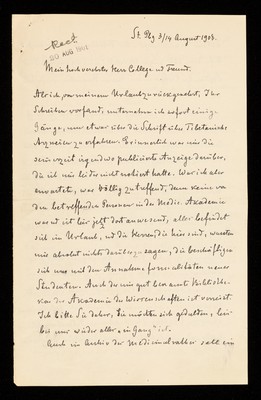 St. Pbg 3/14 August 1903.
Recd
20 AUG 1903
Mein hochverehrter Herr College und Freund.
Als ich von meinem Urlaub zurückgekehrt, Ihr
Schreiben vorfand, unternahm ich sofort einige
Gänge, um etwas über die Schrift über Tibetanische
Arzneien zu erfahren. Erinnerlich war mir die
seinerzeit irgendwo publicierte Anzeige darüber,
die ich mir leider nicht notiert hatte. Was ich aber
erwartete, war völlig zutreffend, denn keine von
den betreffenden Personen in der Medic. Akademie
war ist hier jetzt dort anwesend, alles befindet
sich im Urlaub, und die Herren die hier sind, wussten
mir absolut nichts darüber zu sagen, die beschäftigen
sich nur mit den Annahme formalitäten neuer
Studenten. Auch der mir gut bekannte Bibliothe-
kar der Akademie der Wissenschaften ist verreist.
Ich bitte Sie daher, Sie möchten sich gedulden, bis
bei uns wieder alles „in Gang" ist.
Auch im Archiv der Medicinalrathes soll ein